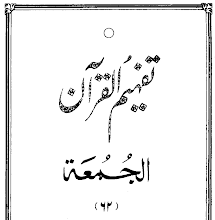 تفہیم القرآن
الجُمُعَة
(۶۲)